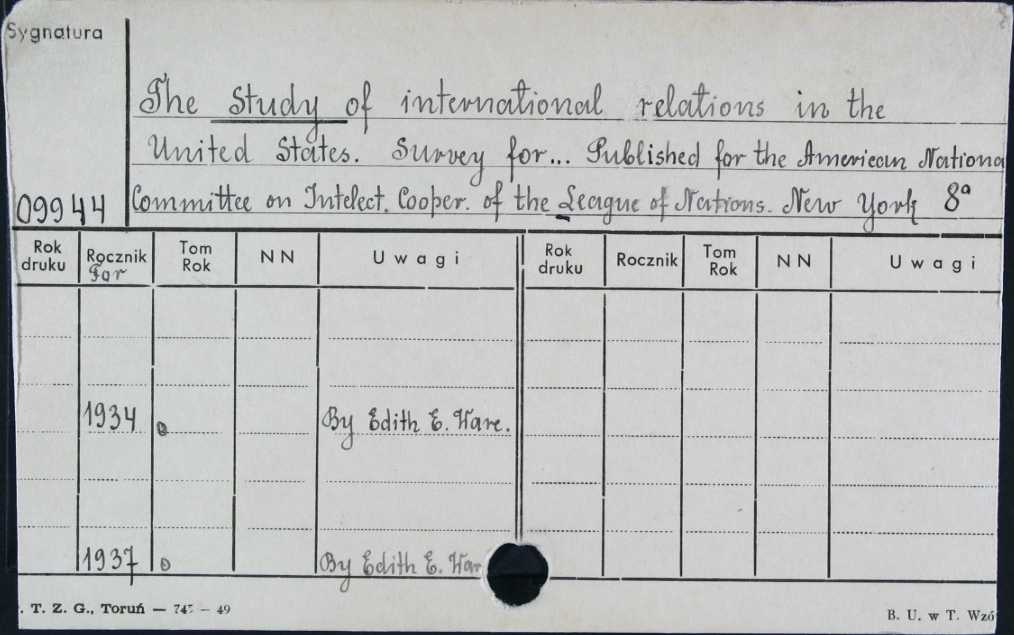 Sygnatura
The Study of international relations in the
United States. Survey for... Published for the American Nationa
09944 Committee on Intelect. Cooper. of the League of Nations. New York 8º
Rok druku Rocznik for Tom Rok NN Uwagi Rok druku Rocznik Tom Rok NN Uwagi
1934 By Edith E. Ware.
1937 By Edith E. War
. T. Z. G., Toruń — 745 — 49 B. U. w T. Wzó